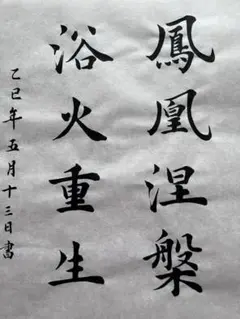 鳳凰涅槃
浴火重生
乙巳年五月十三日書